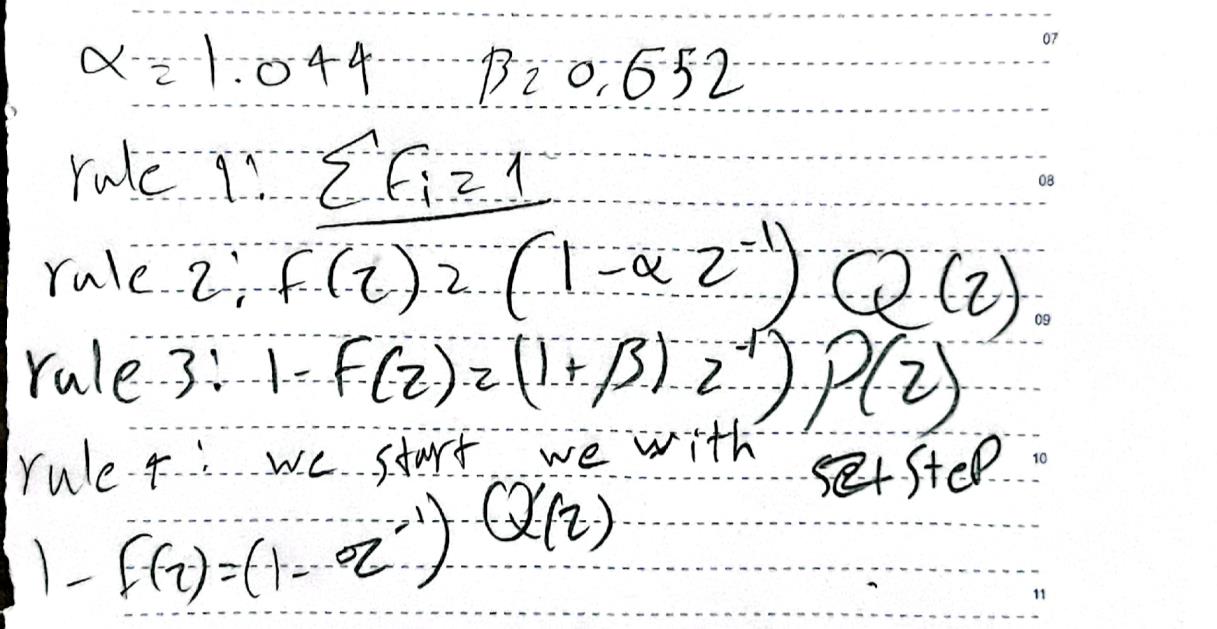 α = 1.044 β = 0.652
07
rule 1: Σ fi = 1
08
rule 2: f(z) = (1 - α z⁻¹) Q(z)
09
rule 3: 1 - F(z) = (1 + β) z⁻¹) P(z)
rule 4: we start we with set step
10
1 - f(z) = (1 - z⁻¹) Q'(z)
11